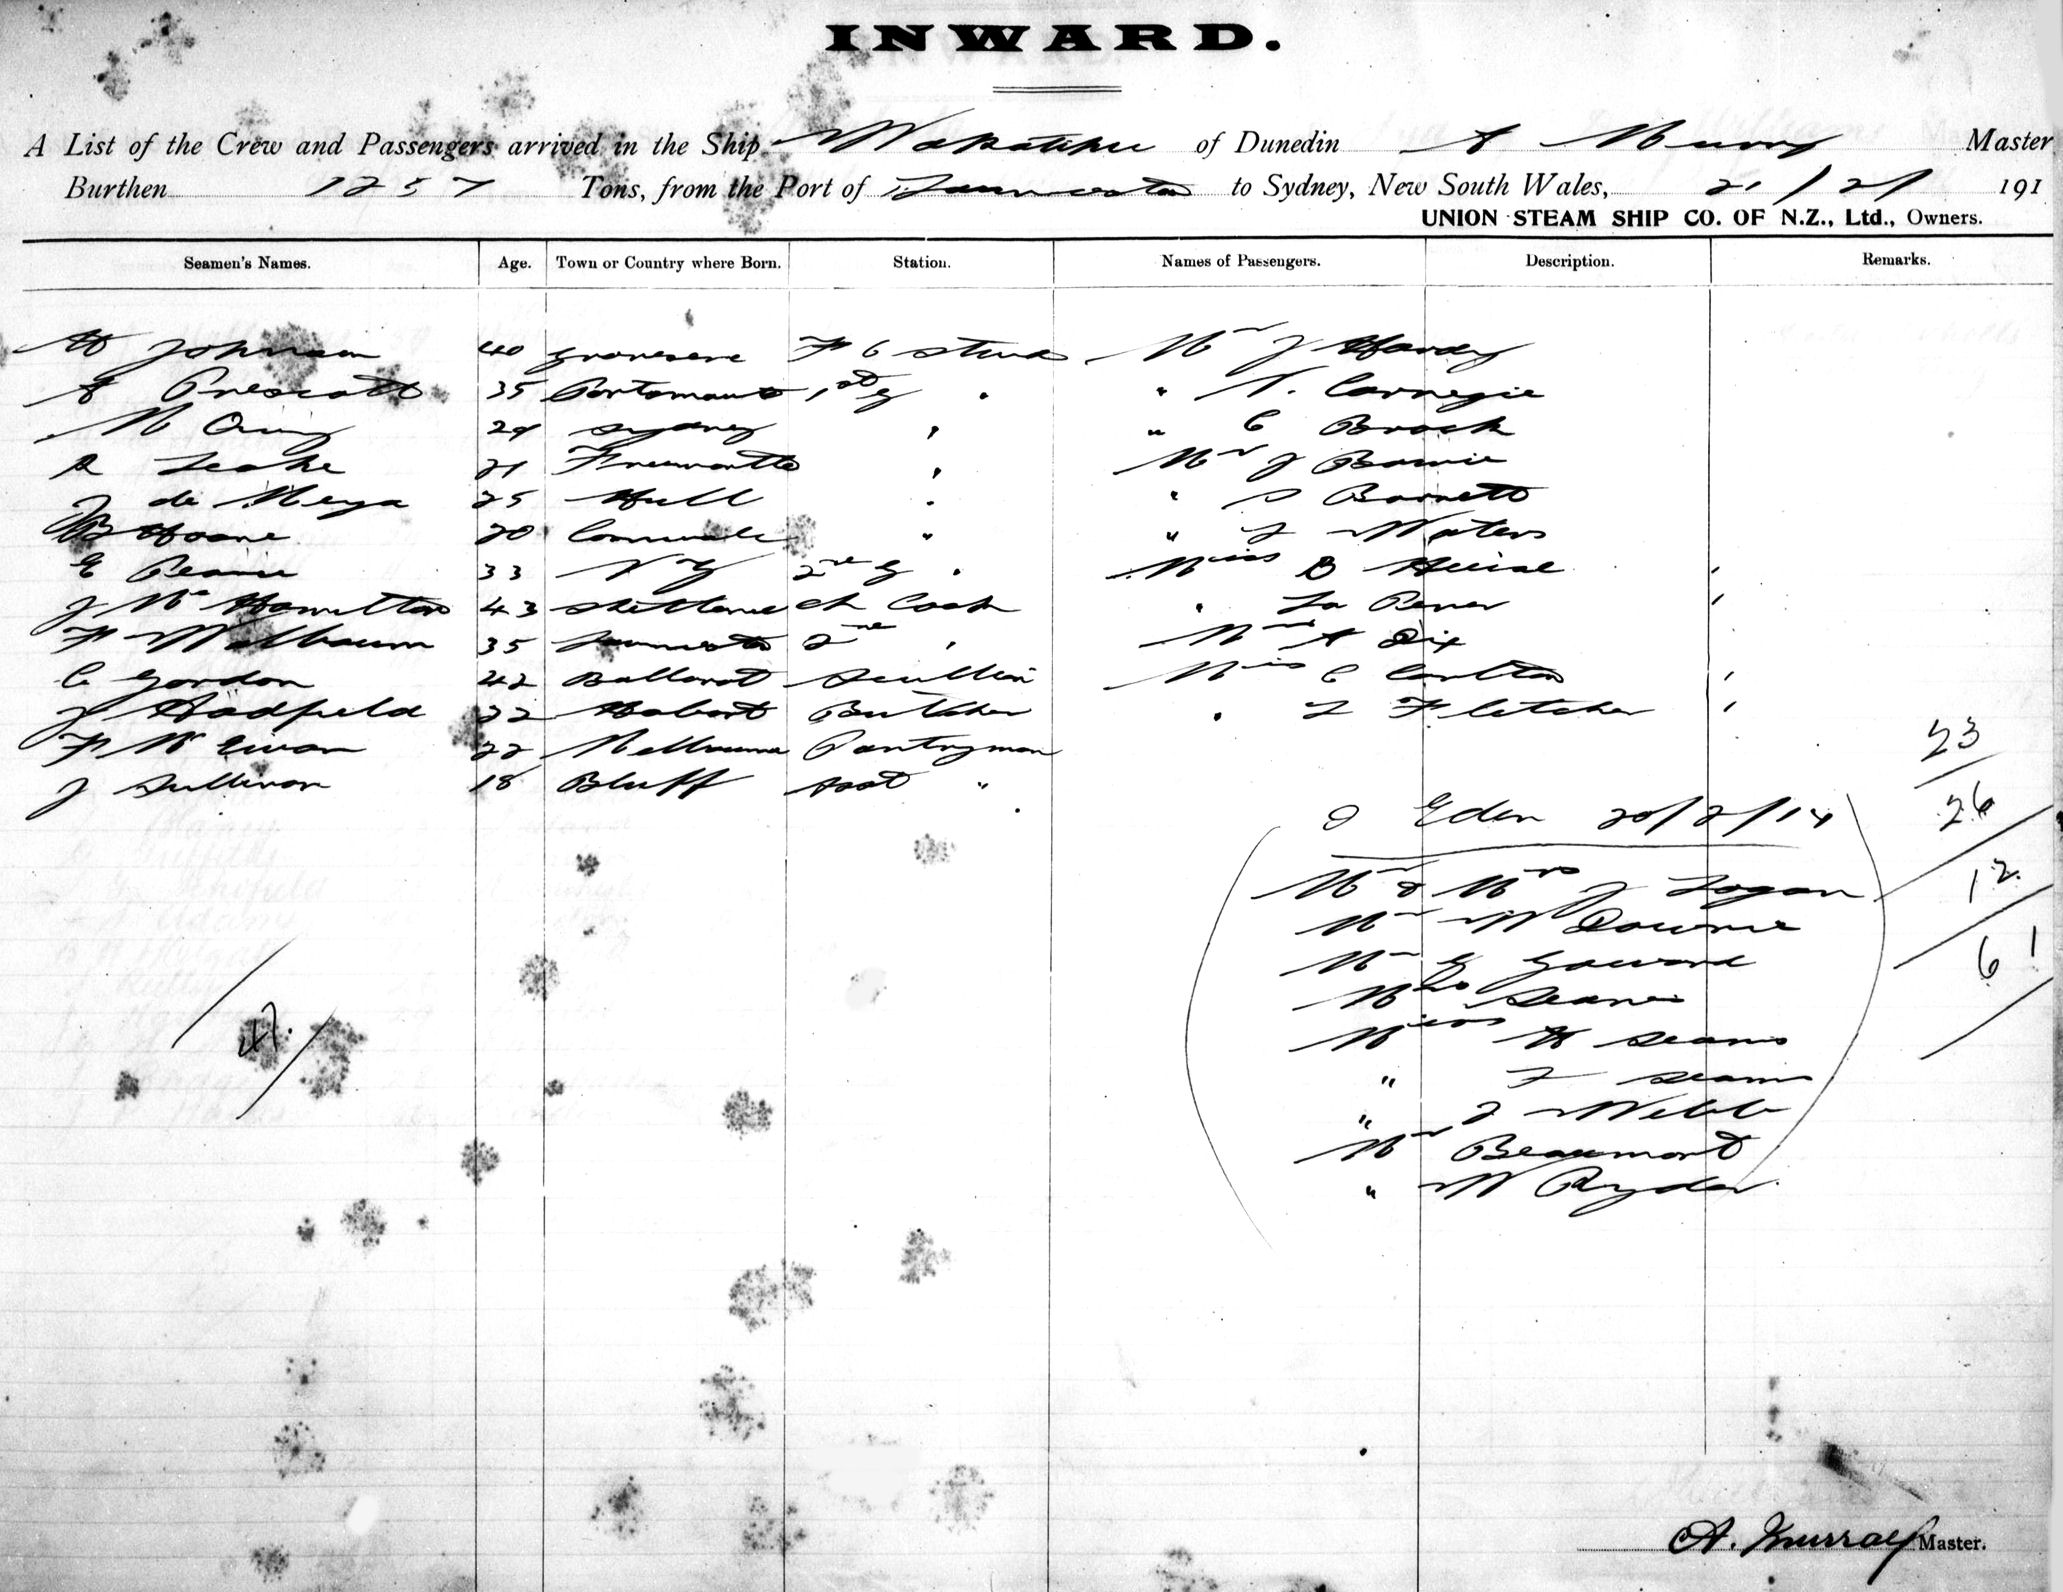 INWARD.
A List of the Crew and Passengers arrived in the Ship Wakatipu of Dunedin A Murray Master
Burthen 1257 Tons, from the Port of Launceston to Sydney, New South Wales, 21/2/ 191
UNION STEAM SHIP CO. OF N.Z., Ltd., Owners.
Seamen's Names. Age. Town or Country where Born. Station. Names of Passengers. Description. Remarks.
H Johnson 40 F C Mr J Hardy
A Prescott 35 1st G " " T. Carnegie
M 29 Sydney " " C Brock
R Leake 21 Fremantle " Mr J Bowie
J de Meya 25 Hull " " S Barnett
Hoare 20 Cornwall " " Waters
E Pearce 33 N Z 2nd G " Miss B "
J McHamilton 43 Shetland Ch Cook " "
F Welbourn 35 Launceston 2nd " Mrs A Dix
C Gordon 42 Ballarat Scullion Miss C Carlton "
J Hadfield 22 Hobart Butcher " L Fletcher "
F McEwan 22 Melbourne Pantryman
J Sullivan 18 Bluff Asst "
23
26
12
61
Eden 20/2/14
Mr & Mrs J Logan
Mr W Downie
Mr G Goward
Mrs Seares
Miss H Seares
" Seares
" J Webb
Mr Beaumont
" W Ryder
47.
A. Murray Master.